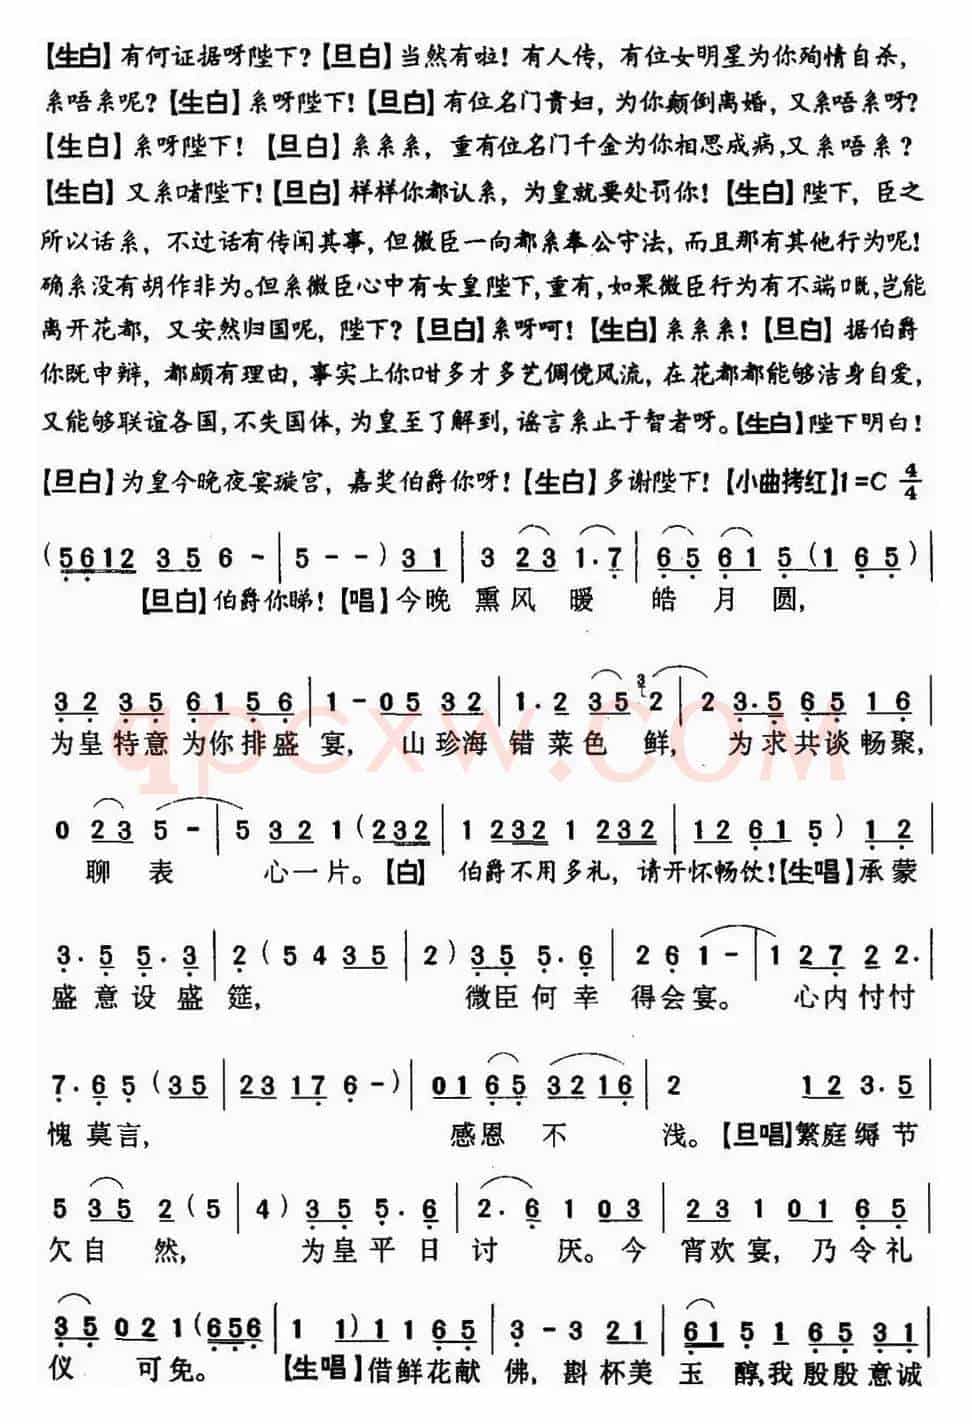 【生白】有何证据呀陛下?【旦白】当然有啦!有人传,有位女明星为你殉情自杀,
系唔系呢?【生白】系呀陛下!【旦白】有位名门贵妇,为你颠倒离婚,又系唔系呀?
【生白】系呀陛下!【旦白】系系系,重有位名门千金为你相思成病,又系唔系?
【生白】又系啫陛下!【旦白】样样你都认系,为皇就要处罚你!【生白】陛下,臣之
所以话系,不过话有传闻其事,但微臣一向都系奉公守法,而且那有其他行为呢!
确系没有胡作非为。但系微臣心中有女皇陛下,重有,如果微臣行为有不端嘅,岂能
离开花都,又安然归国呢,陛下?【旦白】系呀呵!【生白】系系系!【旦白】据伯爵
你既申辩,都颇有理由,事实上你咁多才多艺倜傥风流,在花都都能够洁身自爱,
又能够联谊各国,不失国体,为皇至了解到,谣言系止于智者呀。【生白】陛下明白!
【旦白】为皇今晚夜宴璇宫,嘉奖伯爵你呀!【生白】多谢陛下!【小曲拷红】1=C 4/4
(5612 35 6 - | 5 - - ) 31 | 3 23 1·7 | 65 61 5 (1 65) |
【旦白】伯爵你睇!【唱】今晚 熏风 暖 皓 月 圆,
32 35 61 56 | 1 - 05 32 | 1·2 35 3 2 | 2 3·5 65 16 |
为皇特意为你排盛宴, 山珍海错菜色 鲜, 为求共谈畅聚,
0 23 5 - | 5 32 1 (232 | 1 232 1 232 | 12 61 5 ) 12 |
聊 表 心一片。【白】 伯爵不用多礼,请开怀畅饮!【生唱】承蒙
3·5 5·3 | 2 (54 35 | 2) 35 5·6 | 26 1 - | 1 27 22·
盛意设盛筵, 微臣何幸 得会宴。 心内忖忖
7·65 (35 | 23 17 6 -) | 01 65 3216 | 2 12 3·5 |
愧莫言, 感恩 不 浅。【旦唱】繁庭缛节
5 35 2 (5 | 4) 35 5·6 | 2·6 1 03 | 23 1 01 65 |
欠自 然, 为皇平日讨 厌。今 宵欢宴,乃令礼
35 02 1 (656 | 1 1) 1 1 65 | 3 - 3 21 | 61 5 1 65 31 |
仪 可免。 【生唱】借鲜花献 佛,斟杯美 玉 醇,我殷殷意诚
qpcxw.COM